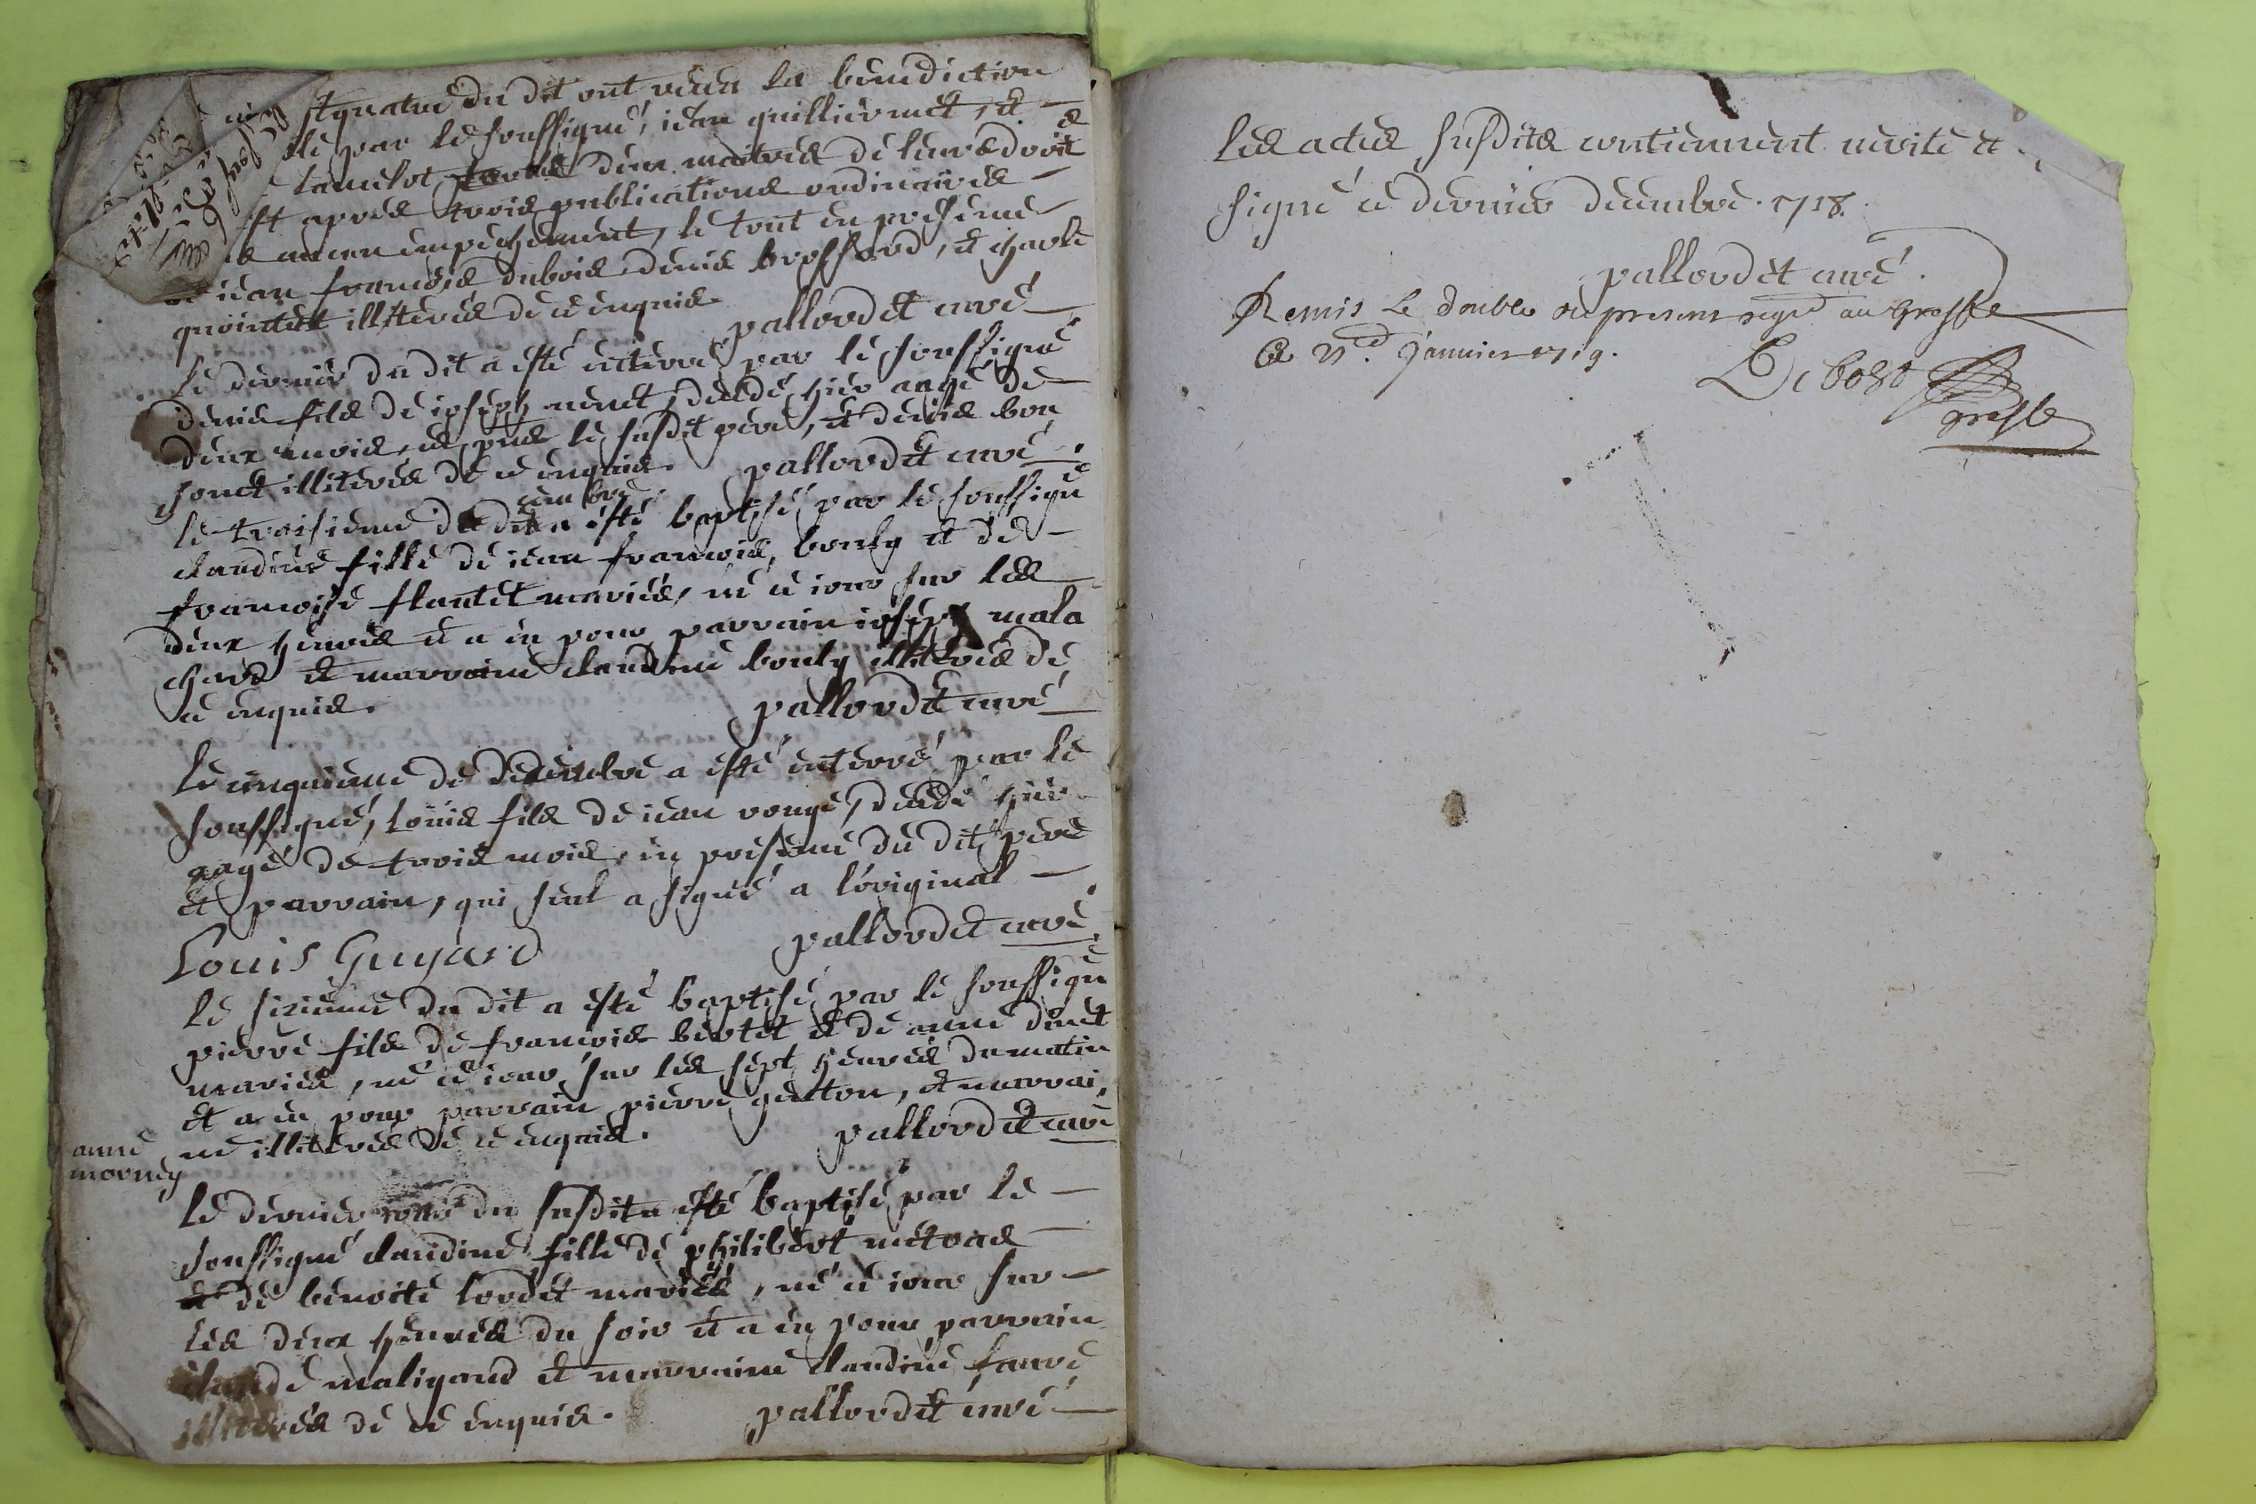 quatre du dit ont receu la benediction
par le soussigné, iean quillieronct, et
lamelot, touts deux maitres de leurs droits
et apres trois publications ordinaires
aucun empechement, le tout en presence
de iean francois dubois, denis brossard, et charle
quointet illiterés de ce enquis. pallordet curé
le dernier du dit a esté enterré par le soussigné
denis fils de ioseph menet, decedé hier aagé de
deux mois, en pnce le susdit pere, et denis bon
illiterés de ce enquis. pallordet curé
cembre
le troisieme de a esté baptisé par le soussigné
claudine fille de iean francois bouly et de
francoise flantet mariés, né ce iour sur les
deux heures et a eu pour parrain ioseph mala
chard et marraine claudine bouly illiterés de
ce enquis. pallordet curé
le cinquieme de decembre a esté enterré par le
soussigné, loüis fils de iean rouge, decedé hier
aagé de trois mois, en presence du dit pere
et parrain, qui seul a signé a l'original
Louis Guyard pallordet curé
le sixieme du dit a esté baptisé par le soussigné
pierre fils de francois bertet et de anne dinet
mariés, né ce iour sur les sept heures du matin
et a eu pour parrain pierre getton, et marrai
anne morney
ne illiterés de ce enquis. pallordet curé
le dernier iour du susdit a esté baptisé par le
soussigné claudine fille de philibert metras
et de benoite lordet mariés, né ce iour sur
les deux heures du soir et a eu pour parrain
claude maligand et marraine claudine faure
illiterés de ce enquis. pallordet curé
les actes susdits contiennent verité et
signé ce dernier decembre. 1718.
pallordet curé.
Remis le double du present regre au Greffe
Ce 21e. Janvier 1719.
Debost
greffe